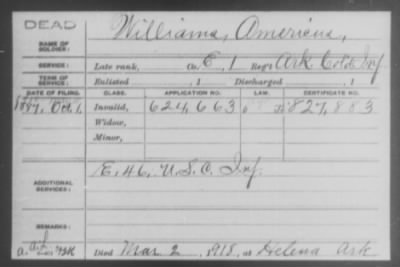 DEAD
Williams, Americus,
NAME OF SOLDIER:
SERVICE: Late rank, Co. E, 1 Reg't Ark Cold Inf
TERM OF SERVICE: Enlisted , 1 Discharged , 1
DATE OF FILING. CLASS. APPLICATION NO. LAW. CERTIFICATE NO.
1887, Oct. 1, Invalid, 624,663 827,883
Widow,
Minor,
E, 46, U.S.C. Inf.
ADDITIONAL SERVICES:
REMARKS:
Died Mar 2, 1918, at Helena Ark